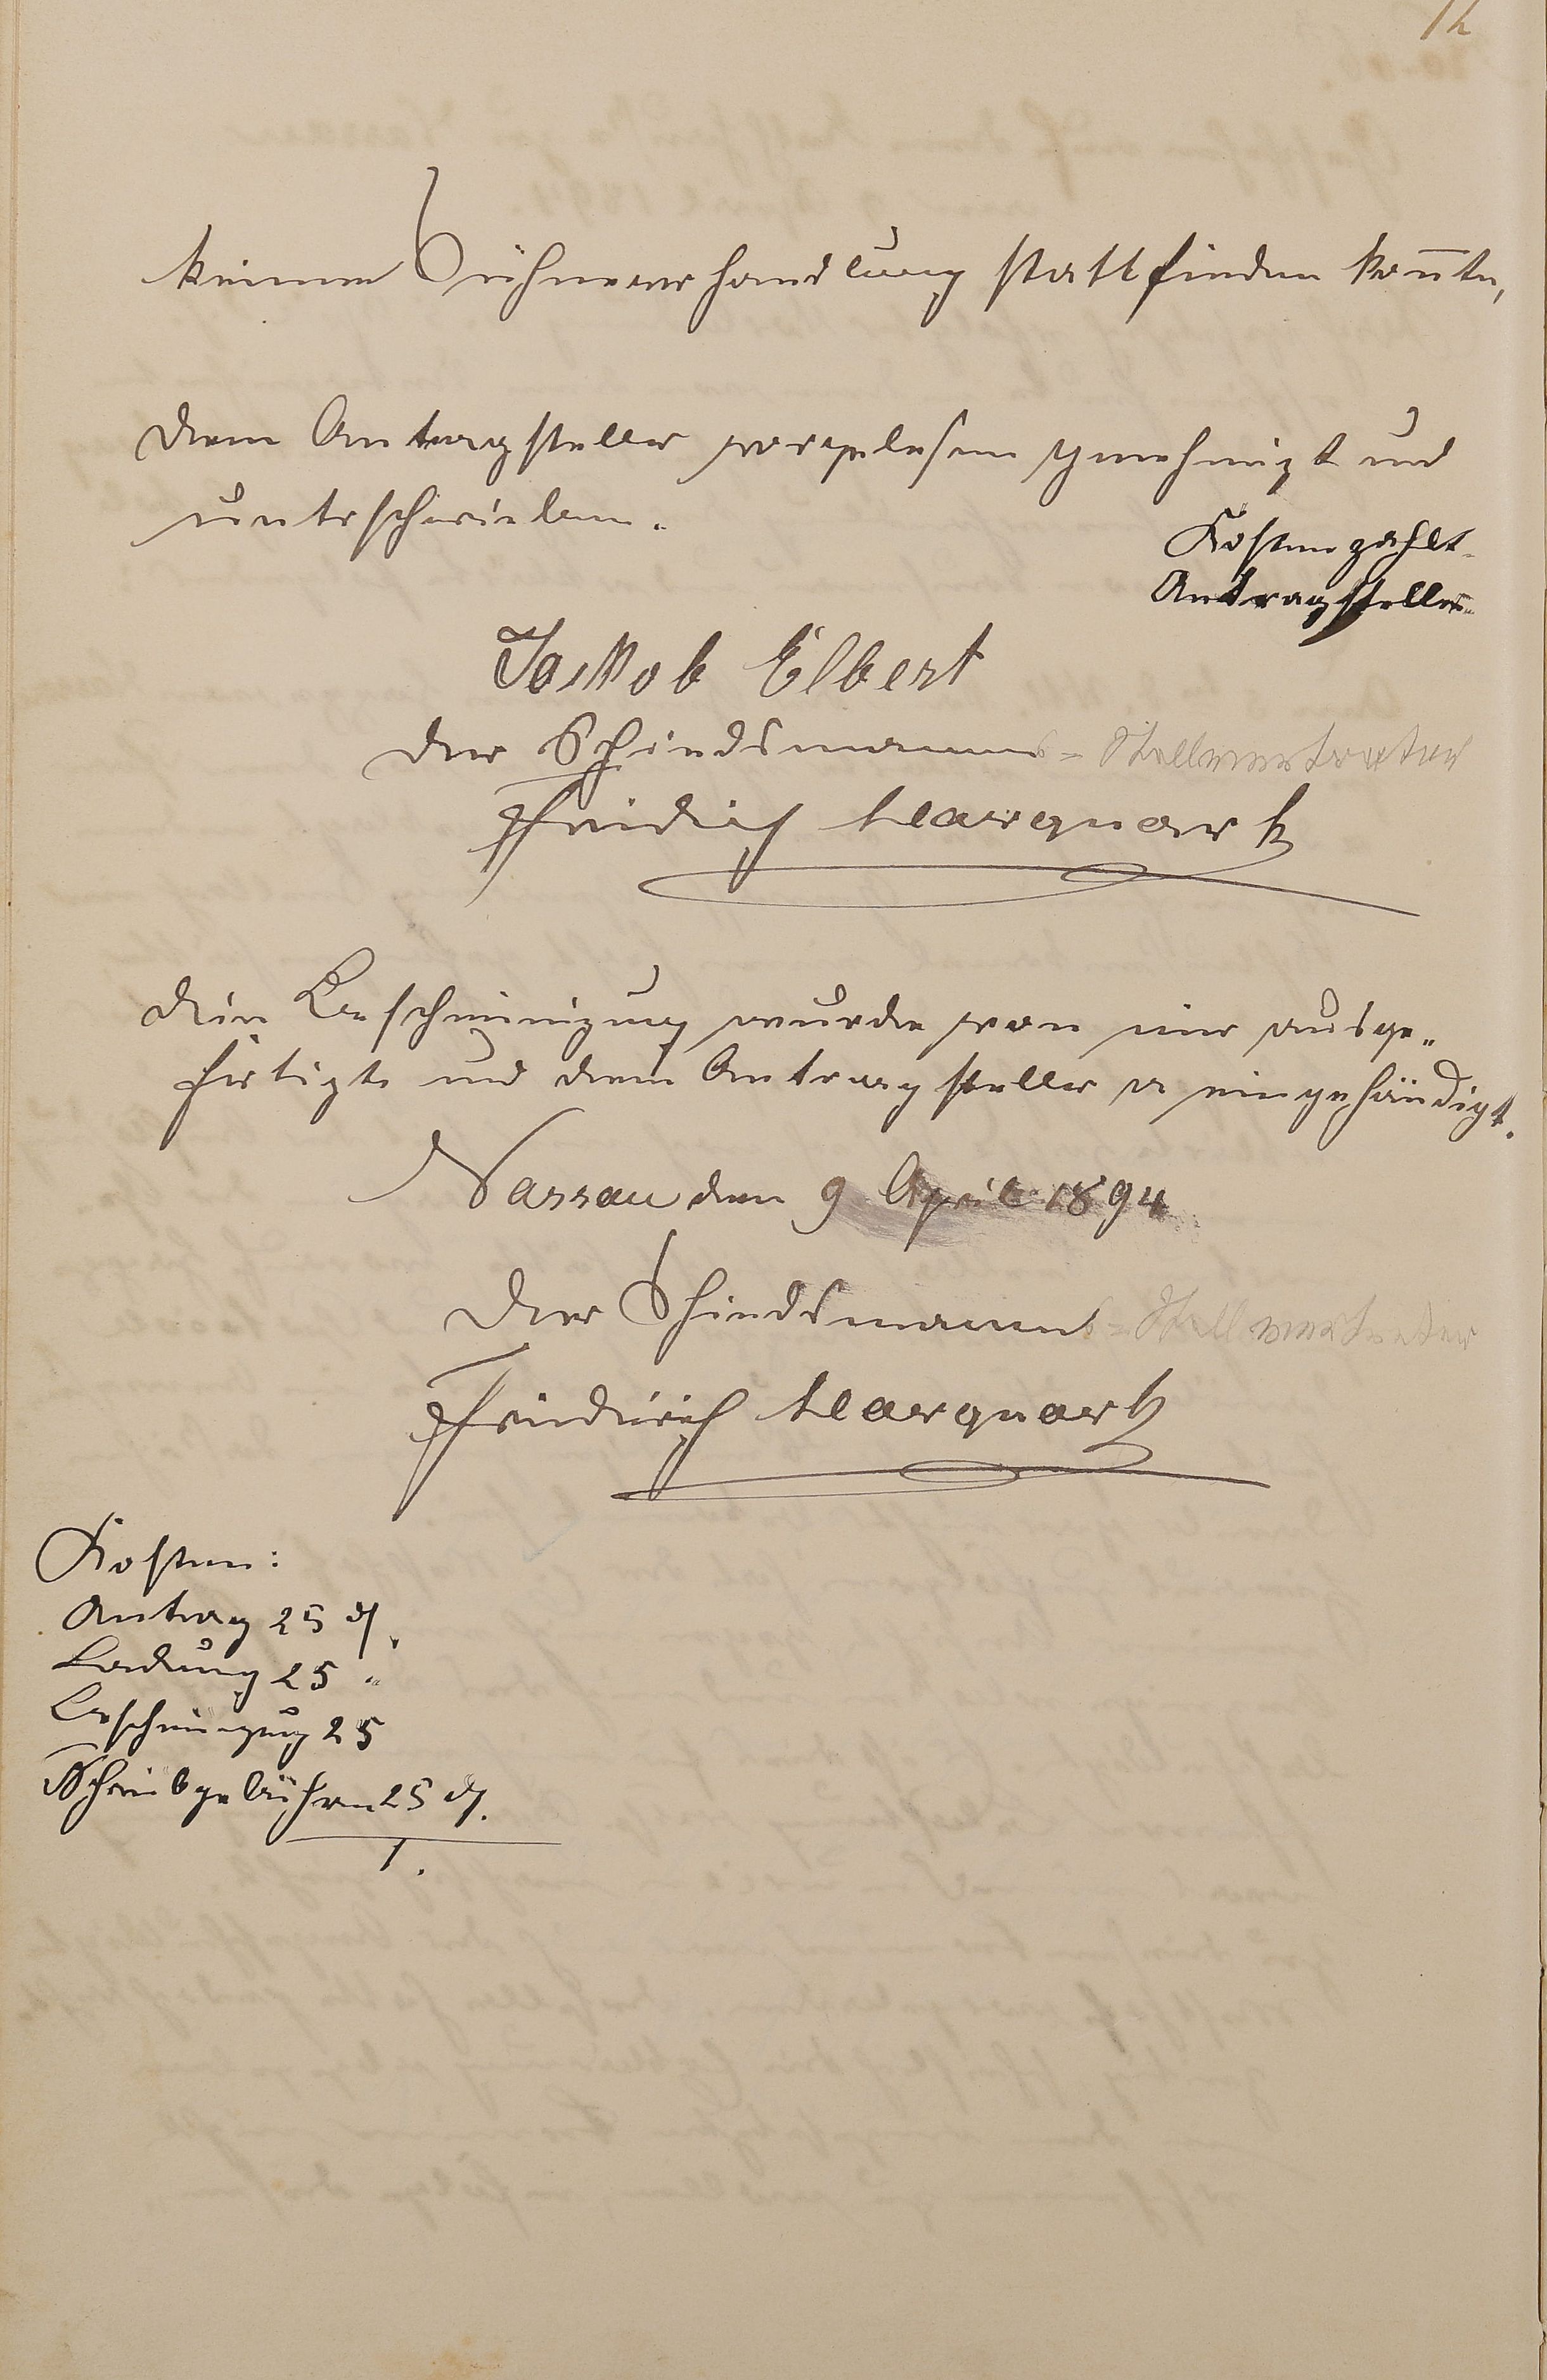 12
keinen Sühneverhandlung stattfinden konnte,
dem Antragsteller vorgelesen genehmigt und
unterschrieben.
Kosten zahlt
Antragsteller
Jakob Elbert
der Schiedsmanns-Stellvertreter
Friedrich Marquartz
Die Bescheinigung wurde von mir ausge„
fertigt und dem Antragsteller eingehändigt.
Nassau den 9 April 1894
Der Schiedsmanns-Stellvertreter
Friedrich Marquartz
Kosten:
Antrag 25 ₰.
Ladung 25 „
Bescheinigung 25
Schreibgebühren 25 ₰.
1.